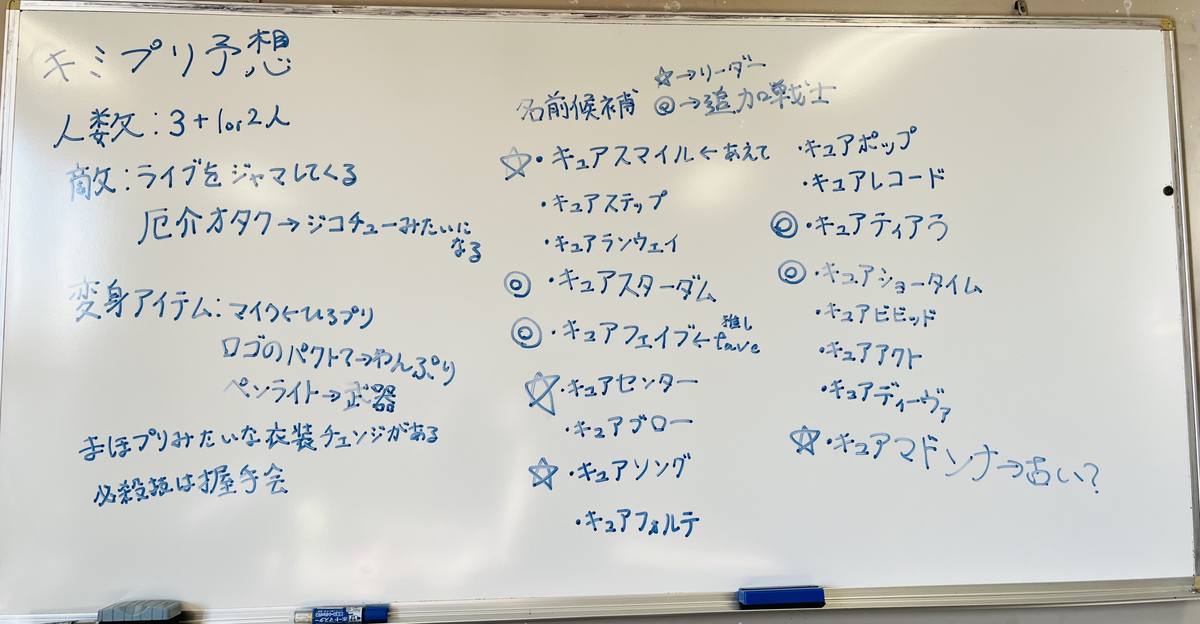 キミプリ予想
人数：3+1or2人
敵：ライブをジャマしてくる
厄介オタク→ジコチューみたいに
なる
変身アイテム：マイク←ひろプリ
ロゴのパクトで→わんぷり
ペンライト→武器
まほプリみたいな衣装チェンジがある
必殺技は握手会
☆→リーダー
名前候補 ◎→追加戦士
☆・キュアスマイル←あえて
・キュアステップ
・キュアランウェイ
◎・キュアスターダム
推し
◎・キュアフェイブ←fave
☆・キュアセンター
・キュアブロー
☆・キュアソング
・キュアフォルテ
・キュアポップ
・キュアレコード
◎・キュアティアラ
◎・キュアショータイム
・キュアビビッド
・キュアアクト
・キュアディーヴァ
☆・キュアマドンナ→古い？